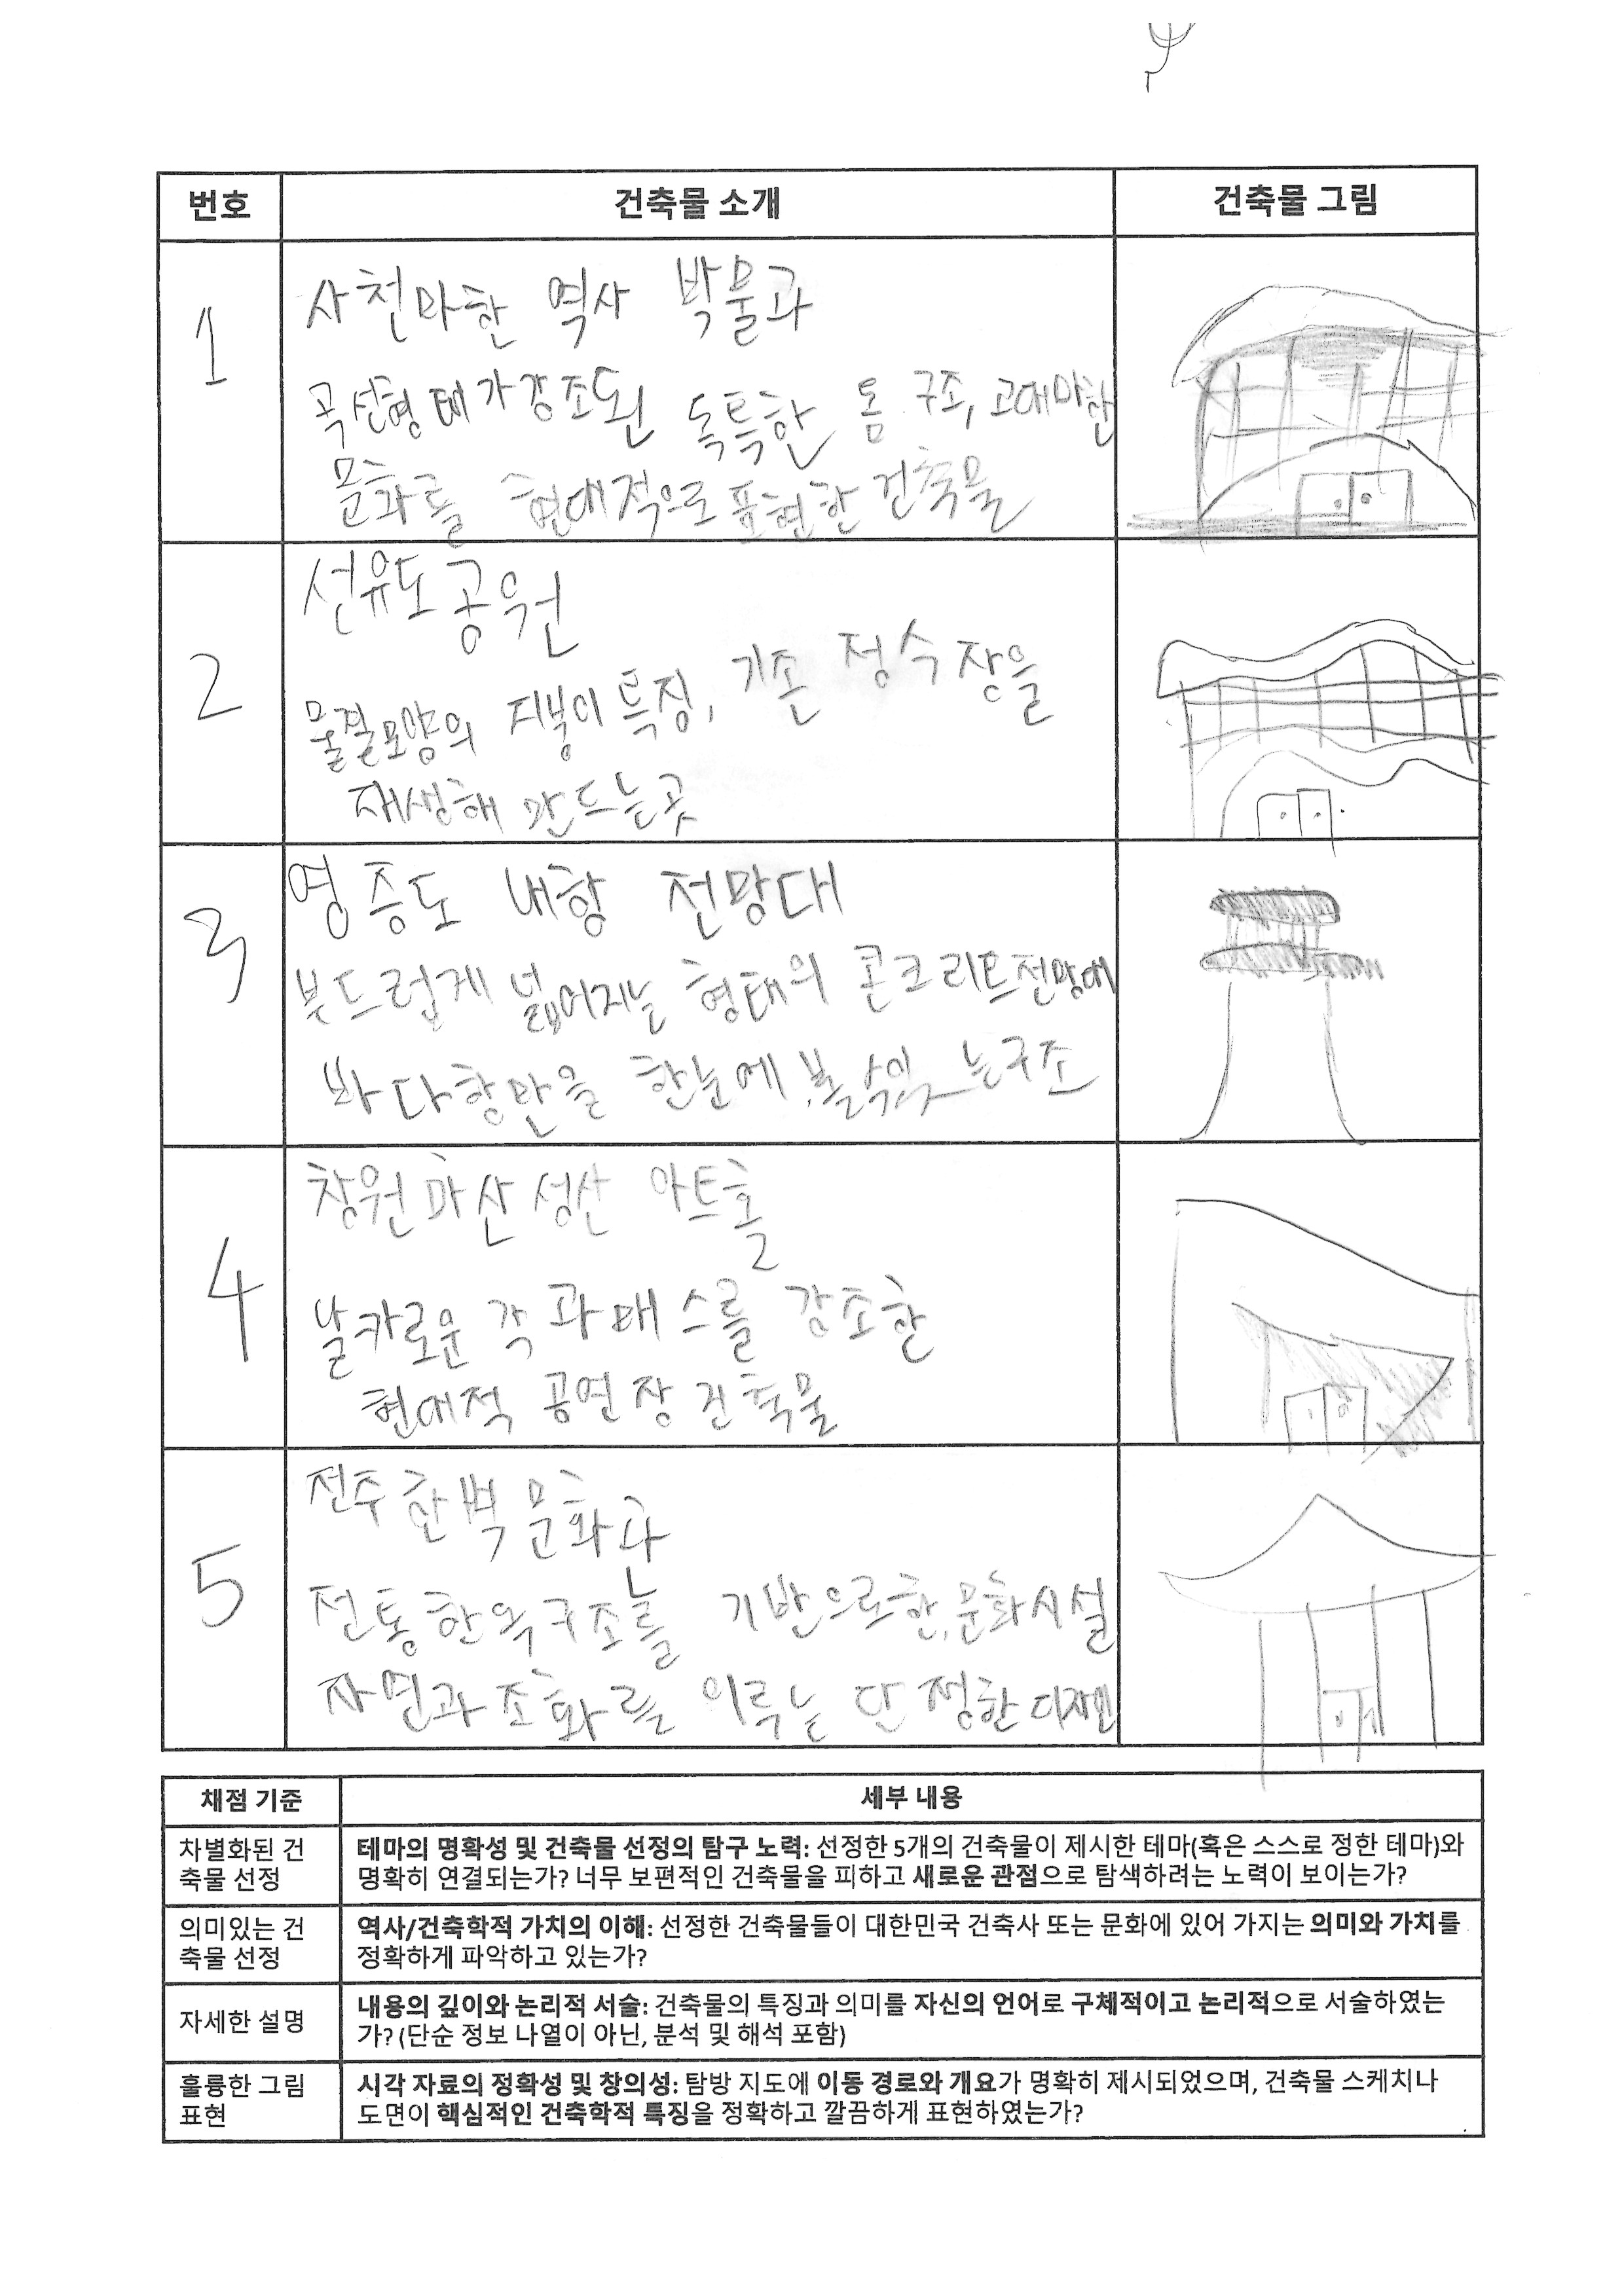 번호 건축물 소개 건축물 그림
1
사천마한 역사 박물과
곡선형태가강조된 독특한 돔 구조, 고대마한
문화를 현대적으로표현한 건축물
2
선유도공원
물결모양의 지붕이 특징, 기존 정수장을
재생해 만드는곳
3
영증도 내항 전망대
부드럽게 넓어지는 형태의 콘크리트전망대
바다항만을 한눈에 볼 수있는구조
4
창원마산성산 아트홀
날카로운 각과매스를 강조한
현대적 공연장 건축물
5
전주한벽문화관
전통한옥구조를 기반으로한 문화시설
자연과조화를 이루는 단정한디자인
채점 기준 세부 내용
차별화된 건축물 선정 테마의 명확성 및 건축물 선정의 탐구 노력: 선정한 5개의 건축물이 제시한 테마(혹은 스스로 정한 테마)와
명확히 연결되는가? 너무 보편적인 건축물을 피하고 새로운 관점으로 탐색하려는 노력이 보이는가?
의미있는 건축물 선정 역사/건축학적 가치의 이해: 선정한 건축물들이 대한민국 건축사 또는 문화에 있어 가지는 의미와 가치를
정확하게 파악하고 있는가?
자세한 설명 내용의 깊이와 논리적 서술: 건축물의 특징과 의미를 자신의 언어로 구체적이고 논리적으로 서술하였는
가? (단순 정보 나열이 아닌, 분석 및 해석 포함)
훌륭한 그림 표현 시각 자료의 정확성 및 창의성: 탐방 지도에 이동 경로와 개요가 명확히 제시되었으며, 건축물 스케치나
도면이 핵심적인 건축학적 특징을 정확하고 깔끔하게 표현하였는가?